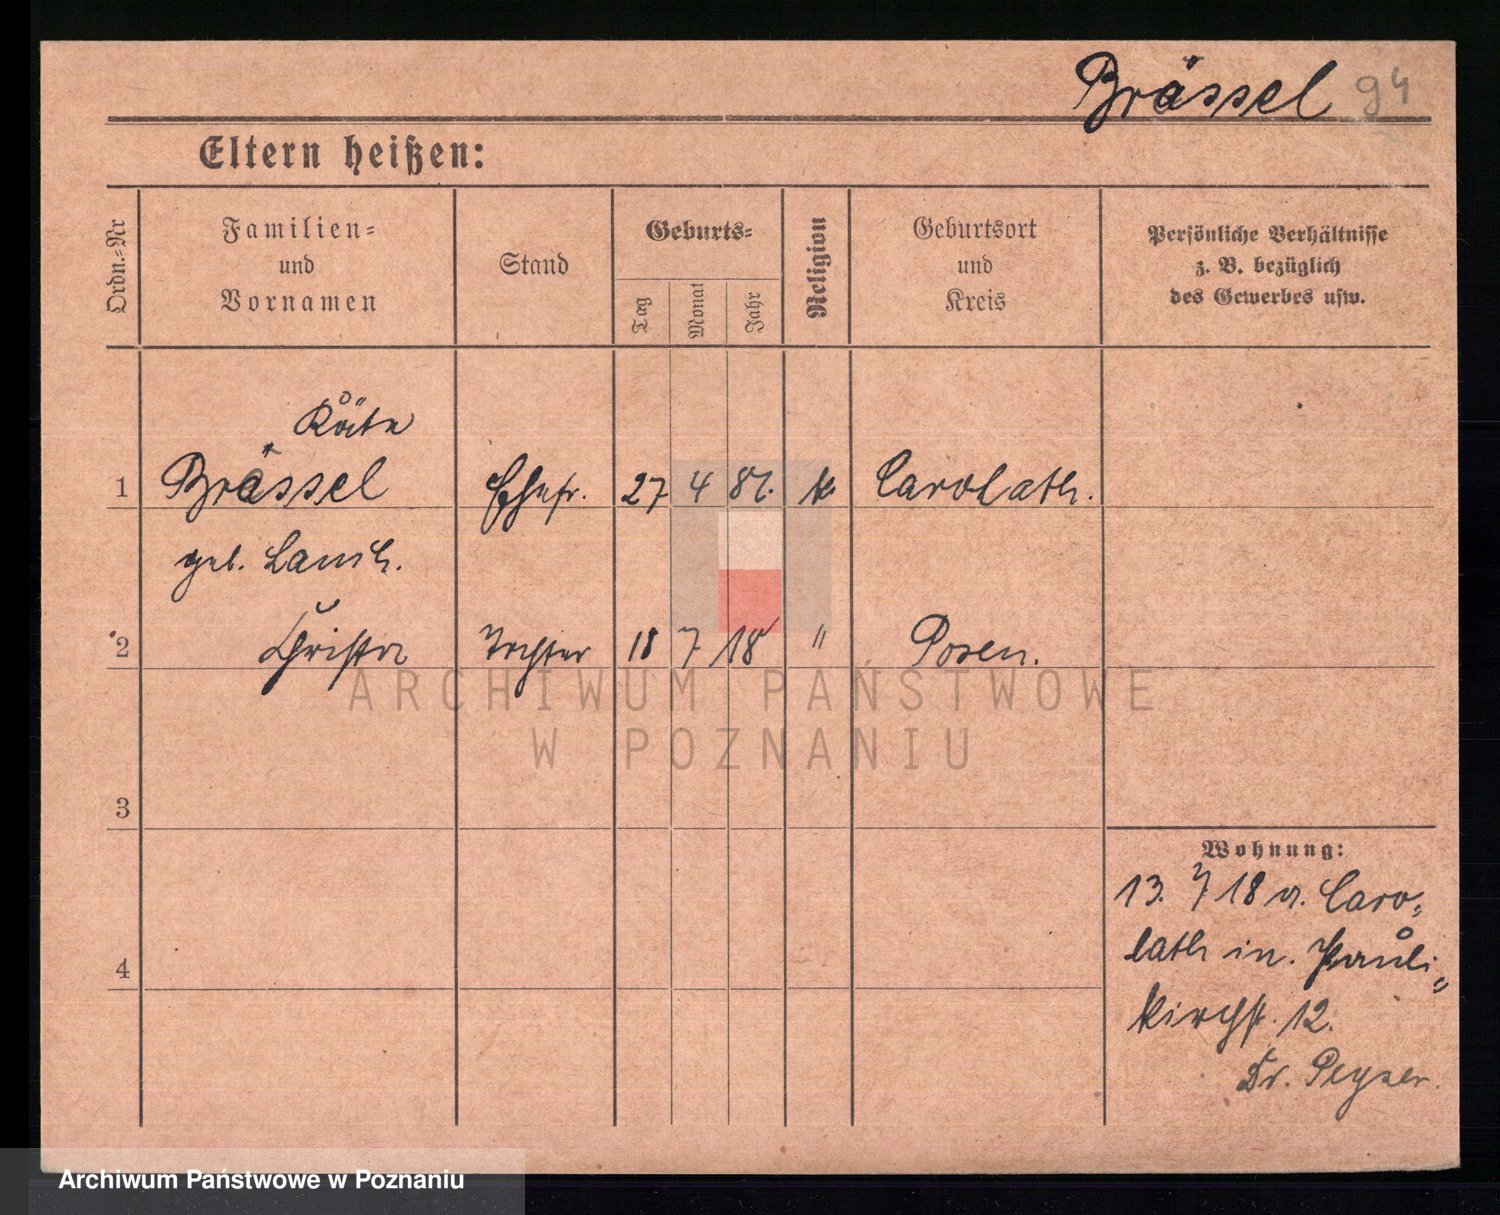 Brässel 94
Eltern heißen:
Ordn.-Nr
Familien-
und
Vornamen
Stand
Geburts-
Tag
Monat
Jahr
Religion
Geburtsort
und
Kreis
Persönliche Verhältnisse
z. B. bezüglich
des Gewerbes usw.
Käte
1 Brässel Ehefr. 27 4 81. k. Carolath.
geb. Lamch.
2 Christa Tochter 18 7 18 " Posen.
3
4
Wohnung:
13. 7 18 a. Caro-
lath in. Pauli-
kirchstr. 12.
Dr. Peyser.
ARCHIWUM PAŃSTWOWE
W POZNANIU
Archiwum Państwowe w Poznaniu